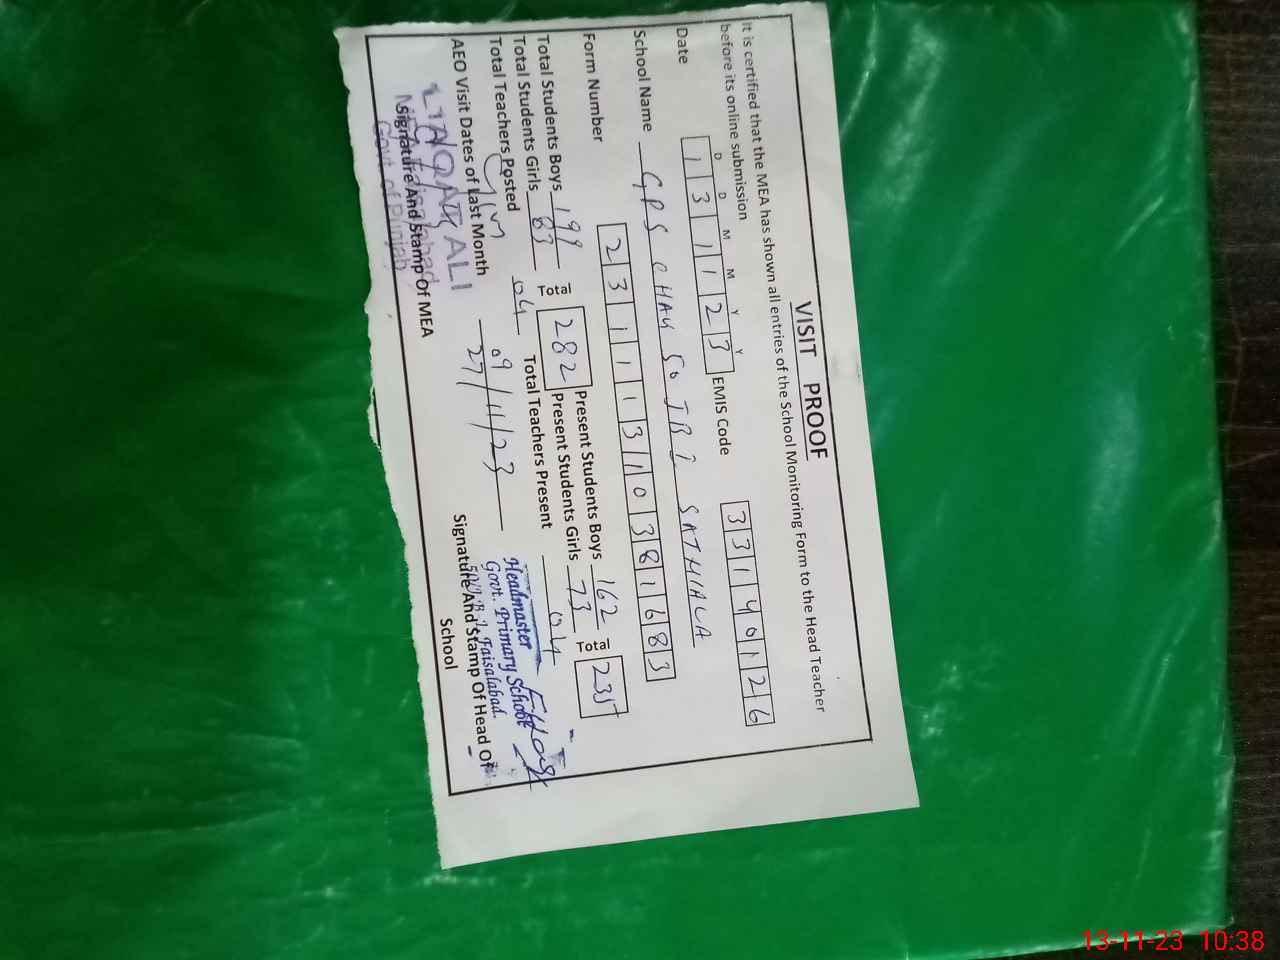 VISIT PROOF
It is certified that the MEA has shown all entries of the School Monitoring Form to the Head Teacher
before its online submission
D D M M Y Y
Date 1 3 1 1 2 3 EMIS Code 3 3 1 4 0 1 2 6
School Name GPS CHAK 50 JB I SATHIALA
Form Number 2 3 1 1 1 3 1 0 3 8 1 6 8 3
Total Students Boys 199 Total 282 Present Students Boys 162 Total 235
Total Students Girls 83 Present Students Girls 73
Total Teachers Posted 04 Total Teachers Present 04
AEO Visit Dates of Last Month 09
27/11/23
LIAQAT ALI
MEA Faisalabad
Govt. of Punjab
Signature And Stamp Of MEA
Headmaster
Govt. Primary School
Faisalabad.
Signature And Stamp Of Head Of
School
13-11-23 10:38